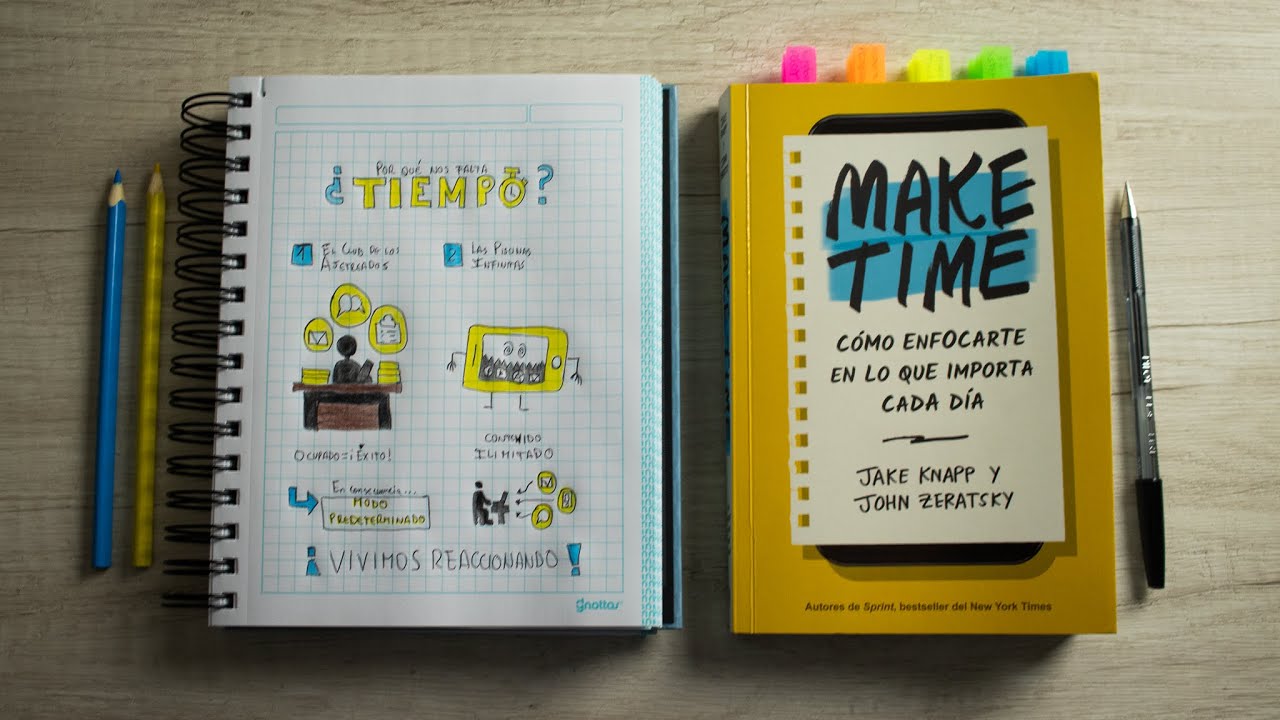 POR QUÉ NOS FALTA
¿TIEMPO?
1 EL CLUB DE LOS
AJETREADOS
2 LAS PISCINAS
INFINITAS
OCUPADO=¡ÉXITO!
CONTENIDO
ILIMITADO
En consecuencia...
MODO
PREDETERMINADO
¡VIVIMOS REACCIONANDO!
gnottas
MAKE
TIME
CÓMO ENFOCARTE
EN LO QUE IMPORTA
CADA DÍA
JAKE KNAPP Y
JOHN ZERATSKY
Autores de Sprint, bestseller del New York Times